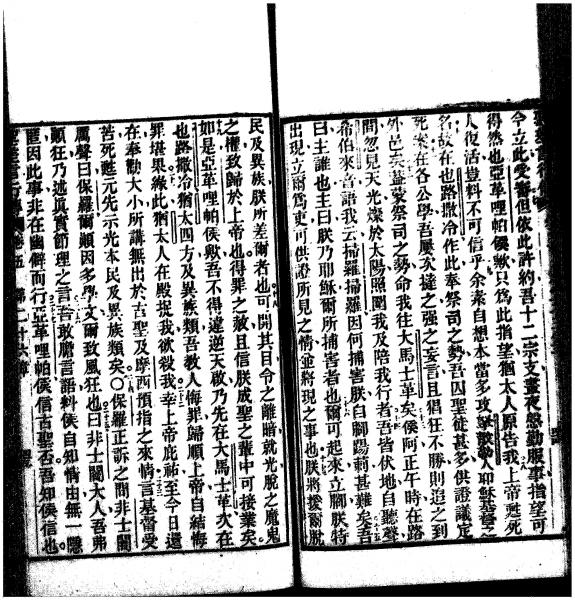 今立此受審但依此許約吾十二宗支晝夜慇勤服事指望可
得然也亞革哩帕侯歟只為此指望猶太人原告我上帝甦死
人復活豈料不可信乎余素自想本當多攻擊人耶穌基督之
名故在也路撒冷作此奉祭司之勢吾囚聖徒甚多供證議定
死案在各公學吾屢次撻之强之妄言且猖狂不勝則迫之到
外邑矣益蒙祭司之勢命我往大馬士革矣侯阿正午時在路
間忽見天光燦於太陽照圜我及陪我行者吾皆伏地自聽聲
希伯來音語我云掃羅掃羅因何捕害朕自腳踢刺甚難矣吾
曰主誰也主曰朕乃耶穌爾所捕害者也爾可起來立腳朕特
出現立爾為吏可供證所見之情並將現之事也朕將援爾脫
民及異族朕所差爾者也可開其目令之離暗就光脫之魔鬼
之權致歸於上帝也得罪之赦且信朕成聖之輩中可接業矣
如是亞革哩帕侯歟吾不得違逆天啟乃先在大馬士革次在
也路撒冷猶太四方及異族類吾教人悔罪歸順上帝自結悔
罪堪果緣此猶太人在殿捉我欲殺我幸上帝庇祐至今日還
在奉勸大小所講無出於古聖及摩西預指之來情言基督受
苦死甦元先示光本民及異族類矣○保羅正訴之間非士闔
厲聲曰保羅爾顛因多學文爾致風狂也曰非士闔大人吾弗
顛狂乃述真實節理之言吾敢膽言語料侯自知情由無一隱
匿因此事非在幽僻而行亞革哩帕侯信古聖否吾知侯信也
卷五 第二十六章